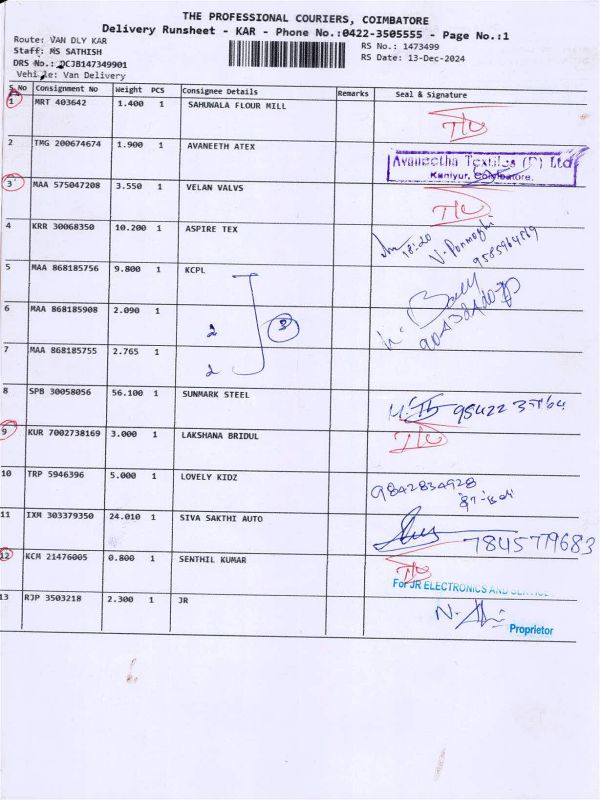 THE PROFESSIONAL COURIERS, COIMBATORE
Delivery Runsheet - KAR - Phone No.:0422-3505555 - Page No.:1
Route: VAN DLY KAR
RS No.: 1473499
Staff: MS SATHISH
RS Date: 13-Dec-2024
DRS No.: DCJB147349901
Vehicle: Van Delivery
S.No Consignment No Weight PCS Consignee Details Remarks Seal & Signature
1 MRT 403642 1.400 1 SAHUWALA FLOUR MILL
2 TMG 200674674 1.900 1 AVANEETH ATEX
Avaneetha Textiles (P) Ltd
Kaniyur, Coimbatore.
3 MAA 575047208 3.550 1 VELAN VALVS
4 KRR 30068350 10.200 1 ASPIRE TEX
18:20
5 MAA 868185756 9.800 1 KCPL
6 MAA 868185908 2.090 1
2 3
7 MAA 868185755 2.765 1
2
8 SPB 30058056 56.100 1 SUNMARK STEEL
9 KUR 7002738169 3.000 1 LAKSHANA BRIDUL
10 TRP 5946396 5.000 1 LOVELY KIDZ
9842834928
11 IXM 303379350 24.010 1 SIVA SAKTHI AUTO
7845779683
12 KCM 21476005 0.800 1 SENTHIL KUMAR
For JR ELECTRONICS AND SERVICE
13 RJP 3503218 2.300 1 JR
Proprietor